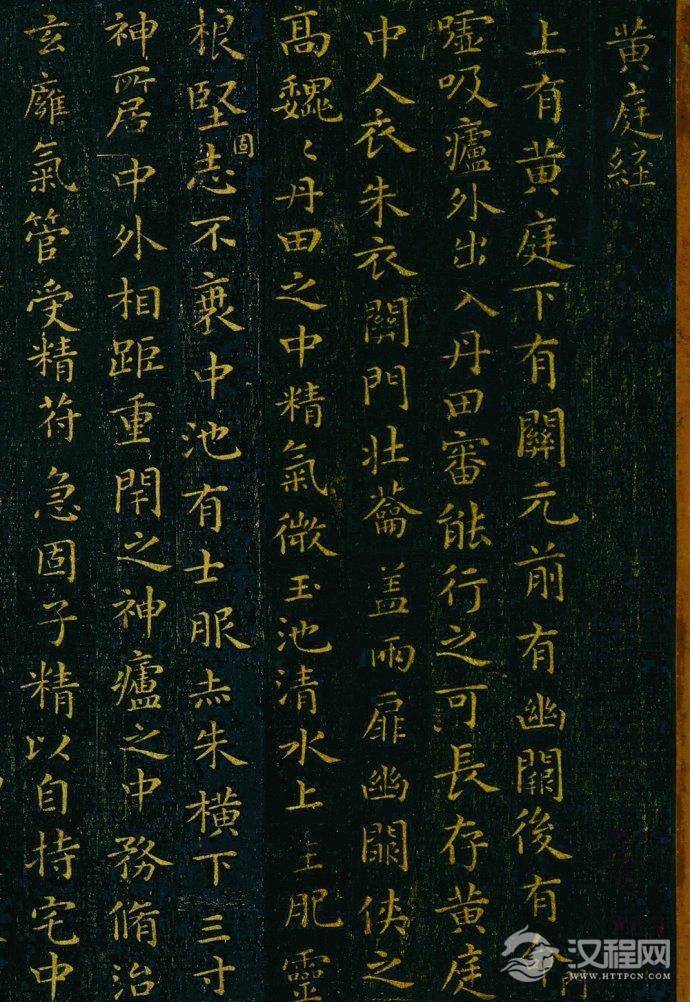 黄庭経
上有黄庭下有關元前有幽闕後有
嘘吸廬外出入丹田審能行之可長存黄庭
中人衣朱衣關門壮蘥盖兩扉幽闕俠之
高魏〻丹田之中精氣微玉池清水上生肥靈
根堅固志不衰中池有士服赤朱横下三寸
神所居中外相距重閇之神廬之中務脩治
玄廱氣管受精苻急固子精以自持宅中
汉程网
WWW.HTTPCN.COM